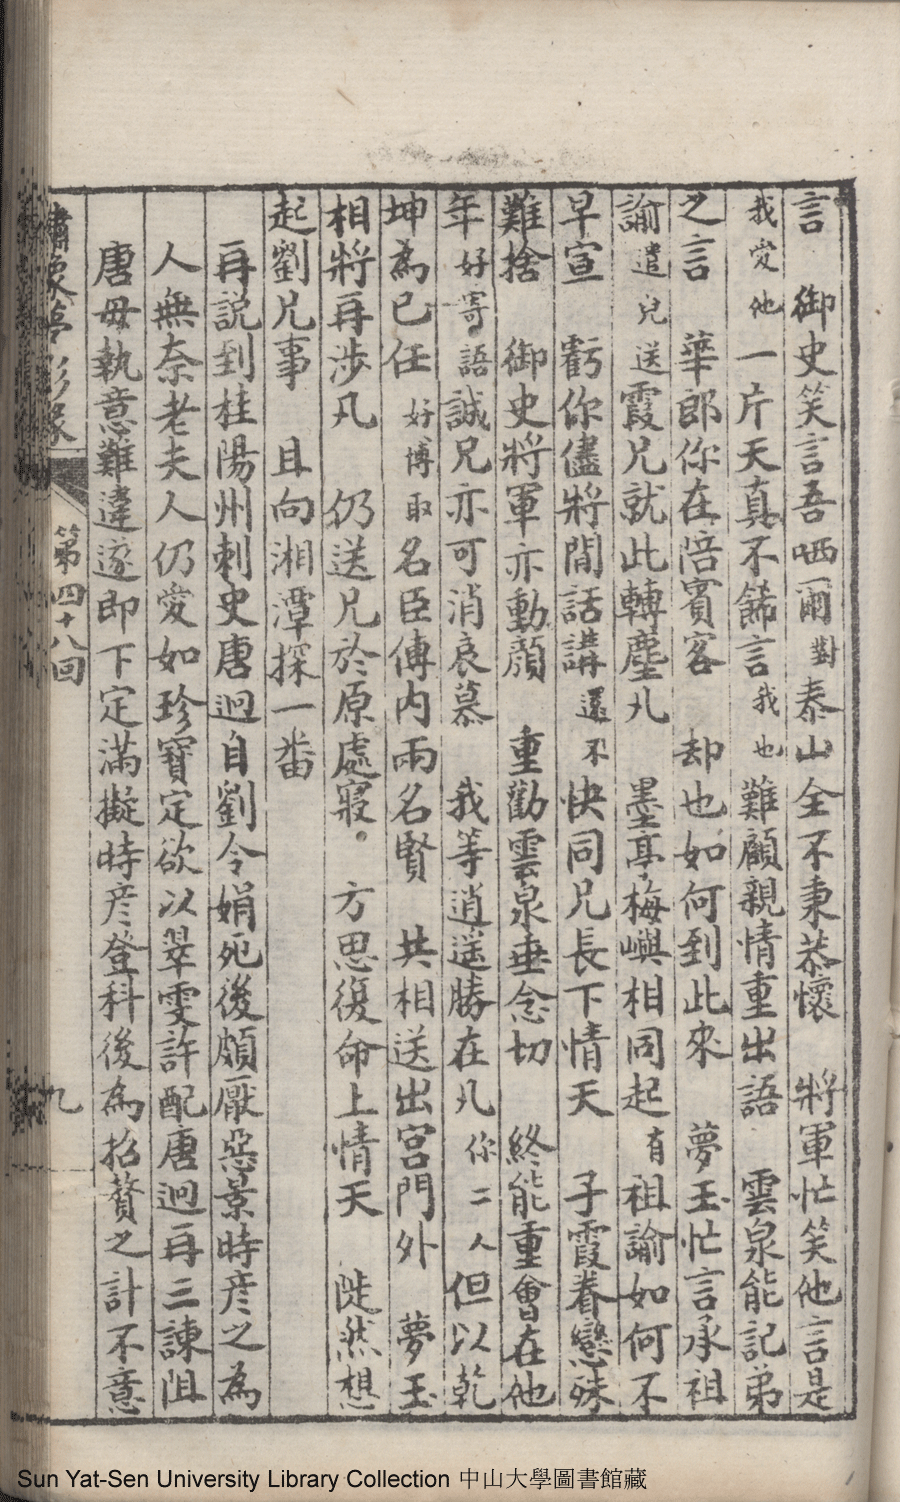 言　御史笑言吾哂爾對泰山全不秉恭懷　將軍忙笑他言是
我愛他一片天真不餙言我也難顧親情重出語　雲泉能記弟
之言　華郎你在陪賓客　却也如何到此來　夢玉忙言承祖
諭遣兒送霞兄就此轉塵凡　墨亭梅嶼相同起有祖諭如何不
早宣　虧你儘將閒話講還不快同兄長下情天　子霞眷戀殊
難捨　御史將軍亦動顏　重勸雲泉垂念切　終能重會在他
年好寄語誠兄亦可消哀慕　我等逍遥勝在凡你二人但以乾
坤為已任好博取名臣傳内兩名賢　共相送出宮門外　夢玉
相將再涉凡　仍送兄於原處寢。方思復命上情天　陡然想
起劉兄事　且向湘潭探一番
再説到桂陽州刺史唐迥自劉令娟死後頗厭惡景時彦之為
人無奈老夫人仍愛如珍寶定欲以翠雯許配唐迥再三諫阻
唐母執意難違遂即下定滿擬時彦登科後為招贅之計不意
繡像夢影緣
第四十八回
九
Sun Yat-Sen University Library Collection 中山大學圖書館藏